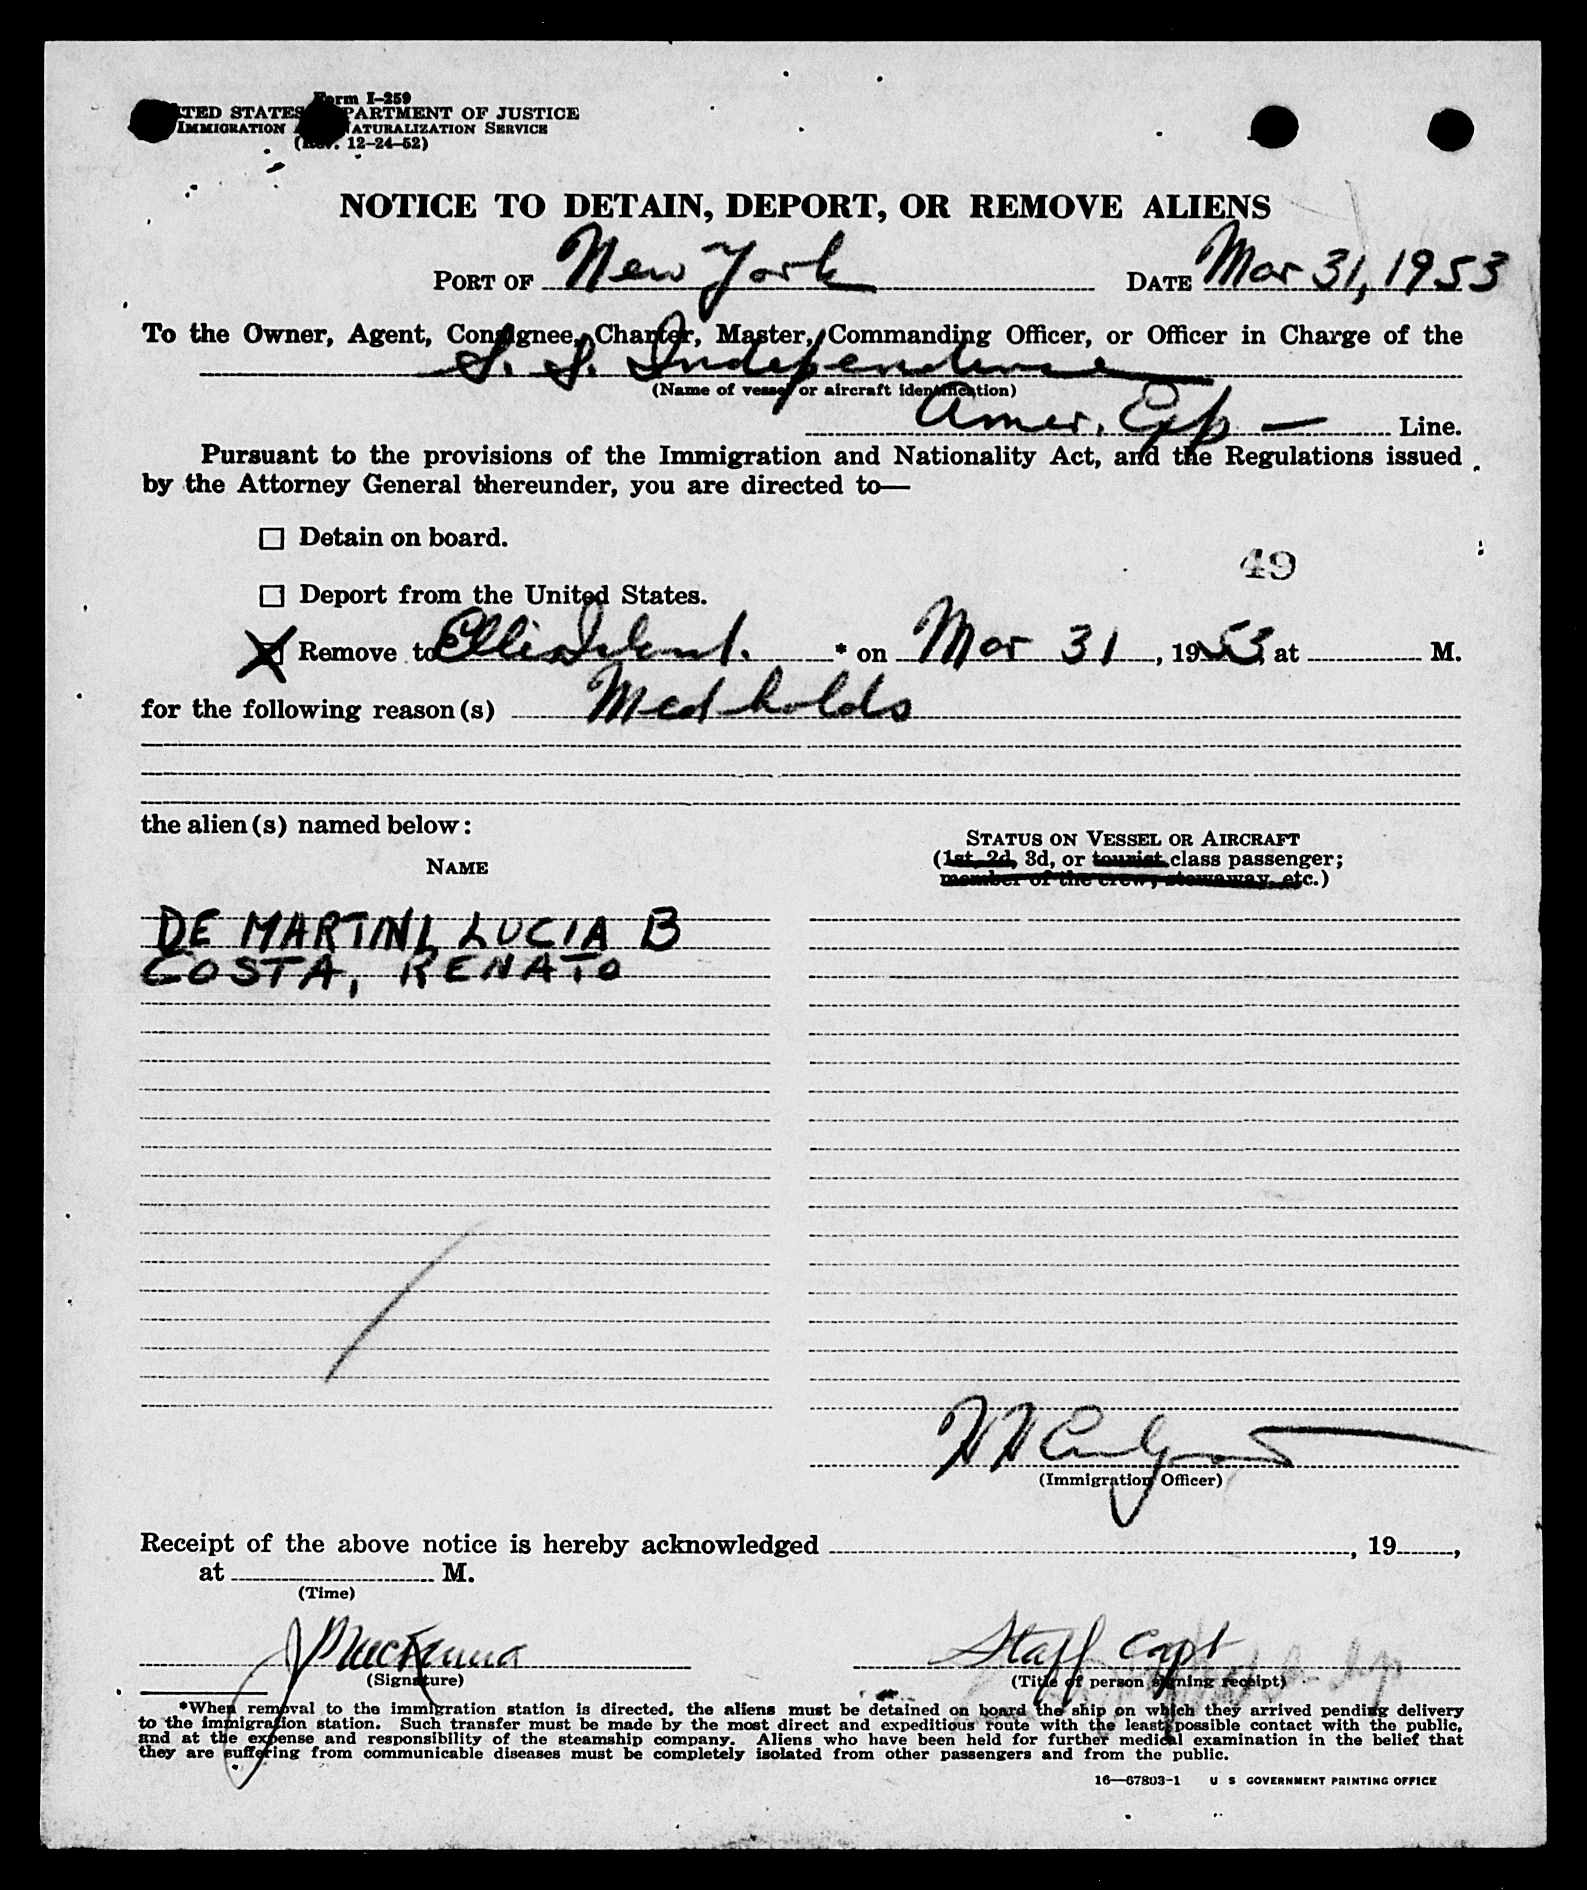 Form I-259
UNITED STATES DEPARTMENT OF JUSTICE
IMMIGRATION AND NATURALIZATION SERVICE
(Rev. 12-24-52)
NOTICE TO DETAIN, DEPORT, OR REMOVE ALIENS
PORT OF New York DATE Mar 31, 1953
To the Owner, Agent, Consignee, Charter, Master, Commanding Officer, or Officer in Charge of the
S. S. Independence
(Name of vessel or aircraft identification)
Amer. Exp — Line.
Pursuant to the provisions of the Immigration and Nationality Act, and the Regulations issued
by the Attorney General thereunder, you are directed to—
Detain on board.
49
Deport from the United States.
Remove to Ellis Island. * on Mar 31, 1953, at M.
for the following reason(s) Med holds
the alien(s) named below:
STATUS ON VESSEL OR AIRCRAFT
NAME
(1st, 2d, 3d, or tourist class passenger;
member of the crew, stowaway, etc.)
DE MARTINI, LUCIA B
COSTA, RENATO
(Immigration Officer)
Receipt of the above notice is hereby acknowledged , 19 ,
at M.
(Time)
Staff Capt
(Signature) (Title of person signing receipt)
*When removal to the immigration station is directed, the aliens must be detained on board the ship on which they arrived pending delivery
to the immigration station. Such transfer must be made by the most direct and expeditious route with the least possible contact with the public,
and at the expense and responsibility of the steamship company. Aliens who have been held for further medical examination in the belief that
they are suffering from communicable diseases must be completely isolated from other passengers and from the public.
16—67803-1 U S GOVERNMENT PRINTING OFFICE